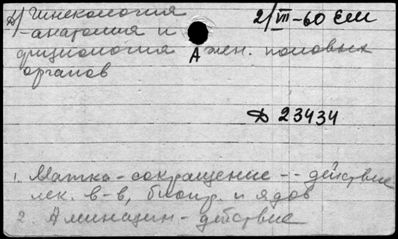 А) Гинекология 2/III-60 ЕМ
-анатомия и
физиология жен. половых
А
органов
Д 23434
1. Матка-сокращение -- действие
лек. в-в, биопр. и ядов
2. Аминазин-действие